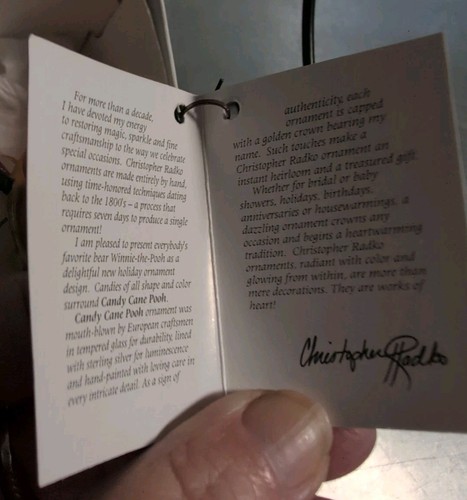 For more than a decade,
I have devoted my energy
to restoring magic, sparkle and fine
craftsmanship to the way we celebrate
special occasions. Christopher Radko
ornaments are made entirely by hand,
using time-honored techniques dating
back to the 1800's – a process that
requires seven days to produce a single
ornament!
I am pleased to present everybody's
favorite bear Winnie-the-Pooh as a
delightful new holiday ornament
design. Candies of all shape and color
surround Candy Cane Pooh.
Candy Cane Pooh ornament was
mouth-blown by European craftsmen
in tempered glass for durability, lined
with sterling silver for luminescence
and hand-painted with loving care in
every intricate detail. As a sign of
authenticity, each
ornament is capped
with a golden crown bearing my
name. Such touches make a
Christopher Radko ornament an
instant heirloom and a treasured gift.
Whether for bridal or baby
showers, holidays, birthdays,
anniversaries or housewarmings, a
dazzling ornament crowns any
occasion and begins a heartwarming
tradition. Christopher Radko
ornaments, radiant with color and
glowing from within, are more than
mere decorations. They are works of
heart!
Christopher Radko